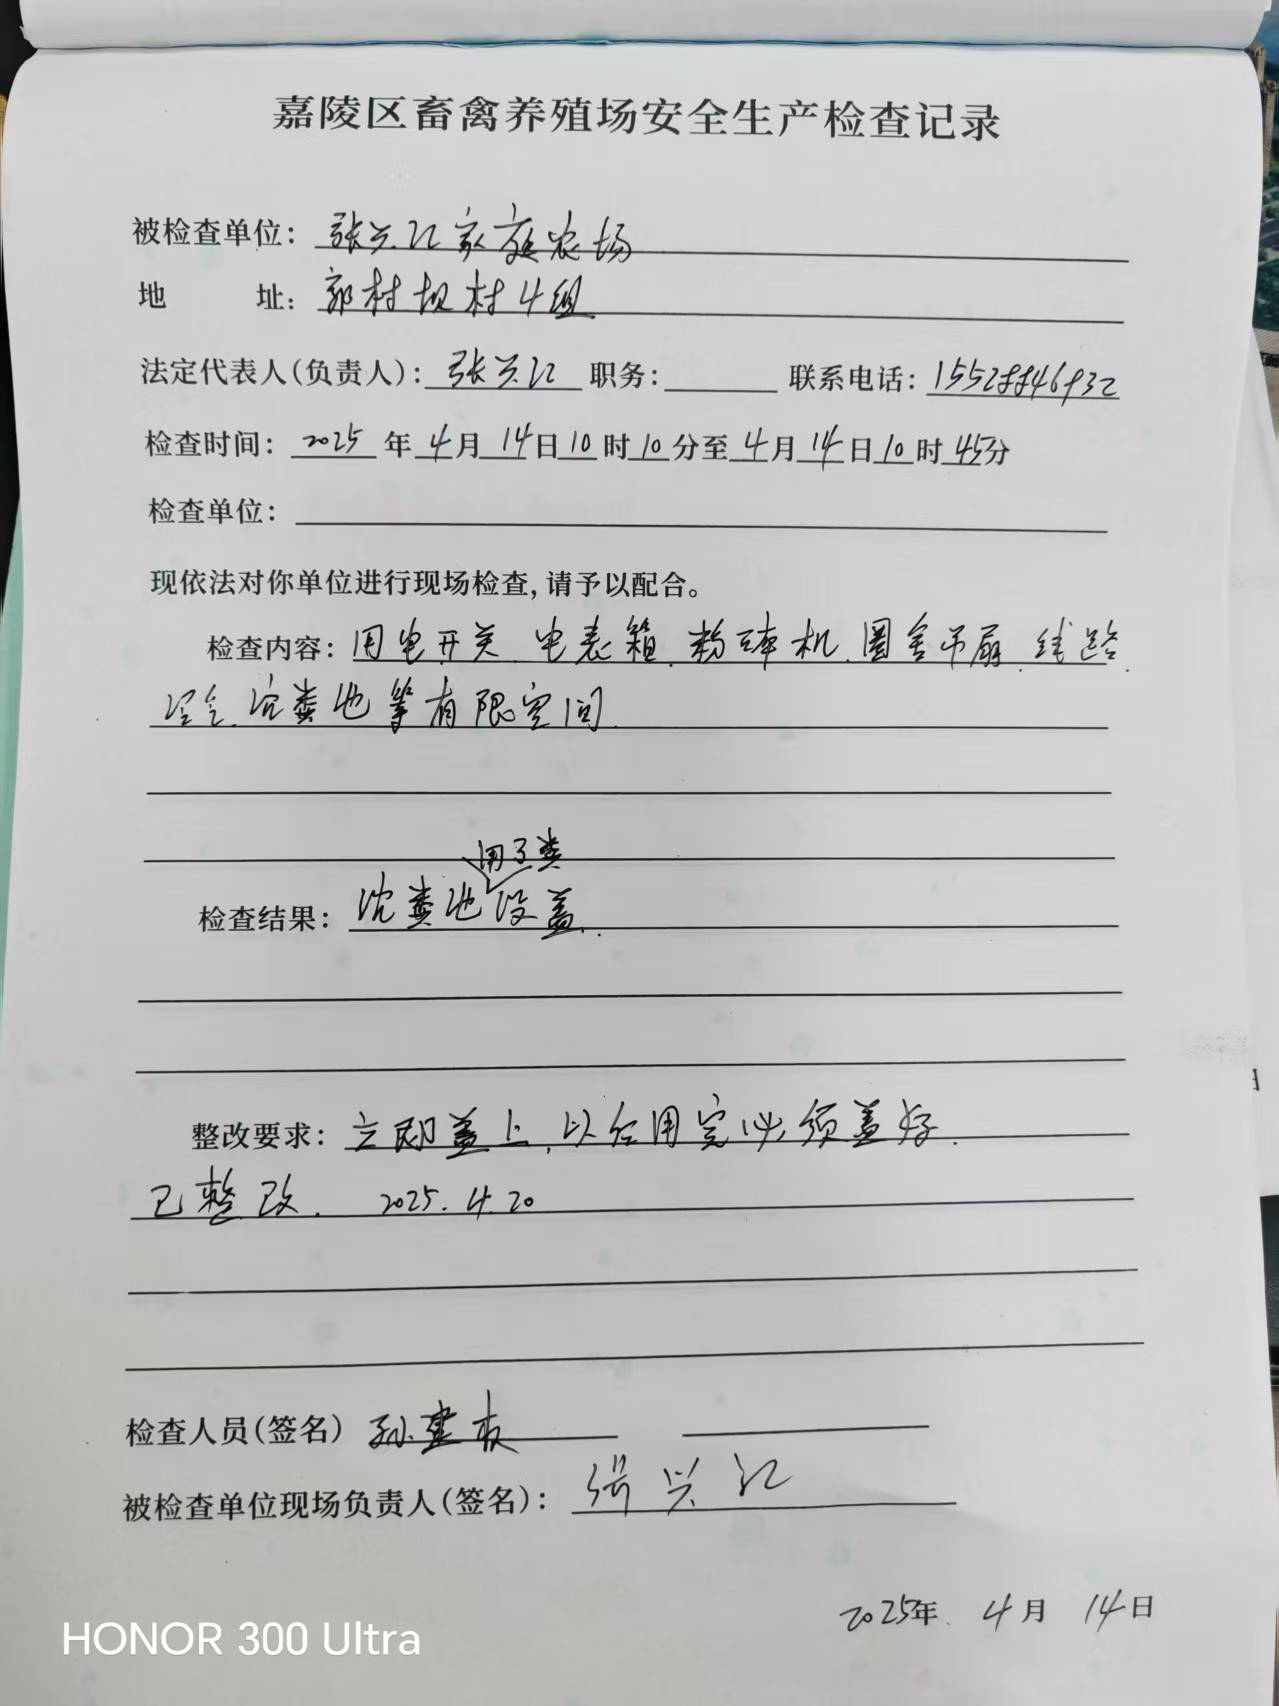 嘉陵区畜禽养殖场安全生产检查记录
被检查单位：张兴江家庭农场
地 址：郭村坝村4组
法定代表人(负责人)：张兴江 职务： 联系电话：15528846932
检查时间：2025年4月14日10时10分至4月14日10时45分
检查单位：
现依法对你单位进行现场检查，请予以配合。
检查内容：用电开关、电表箱、粉碎机、圈舍吊扇、线路
沼气、沉粪池等有限空间.
用了粪
检查结果：沉粪池没盖.
整改要求：立即盖上，以后用完必须盖好.
已整改. 2025.4.20
检查人员(签名) 孙建
被检查单位现场负责人(签名)：张兴江
2025年 4月 14日
HONOR 300 Ultra